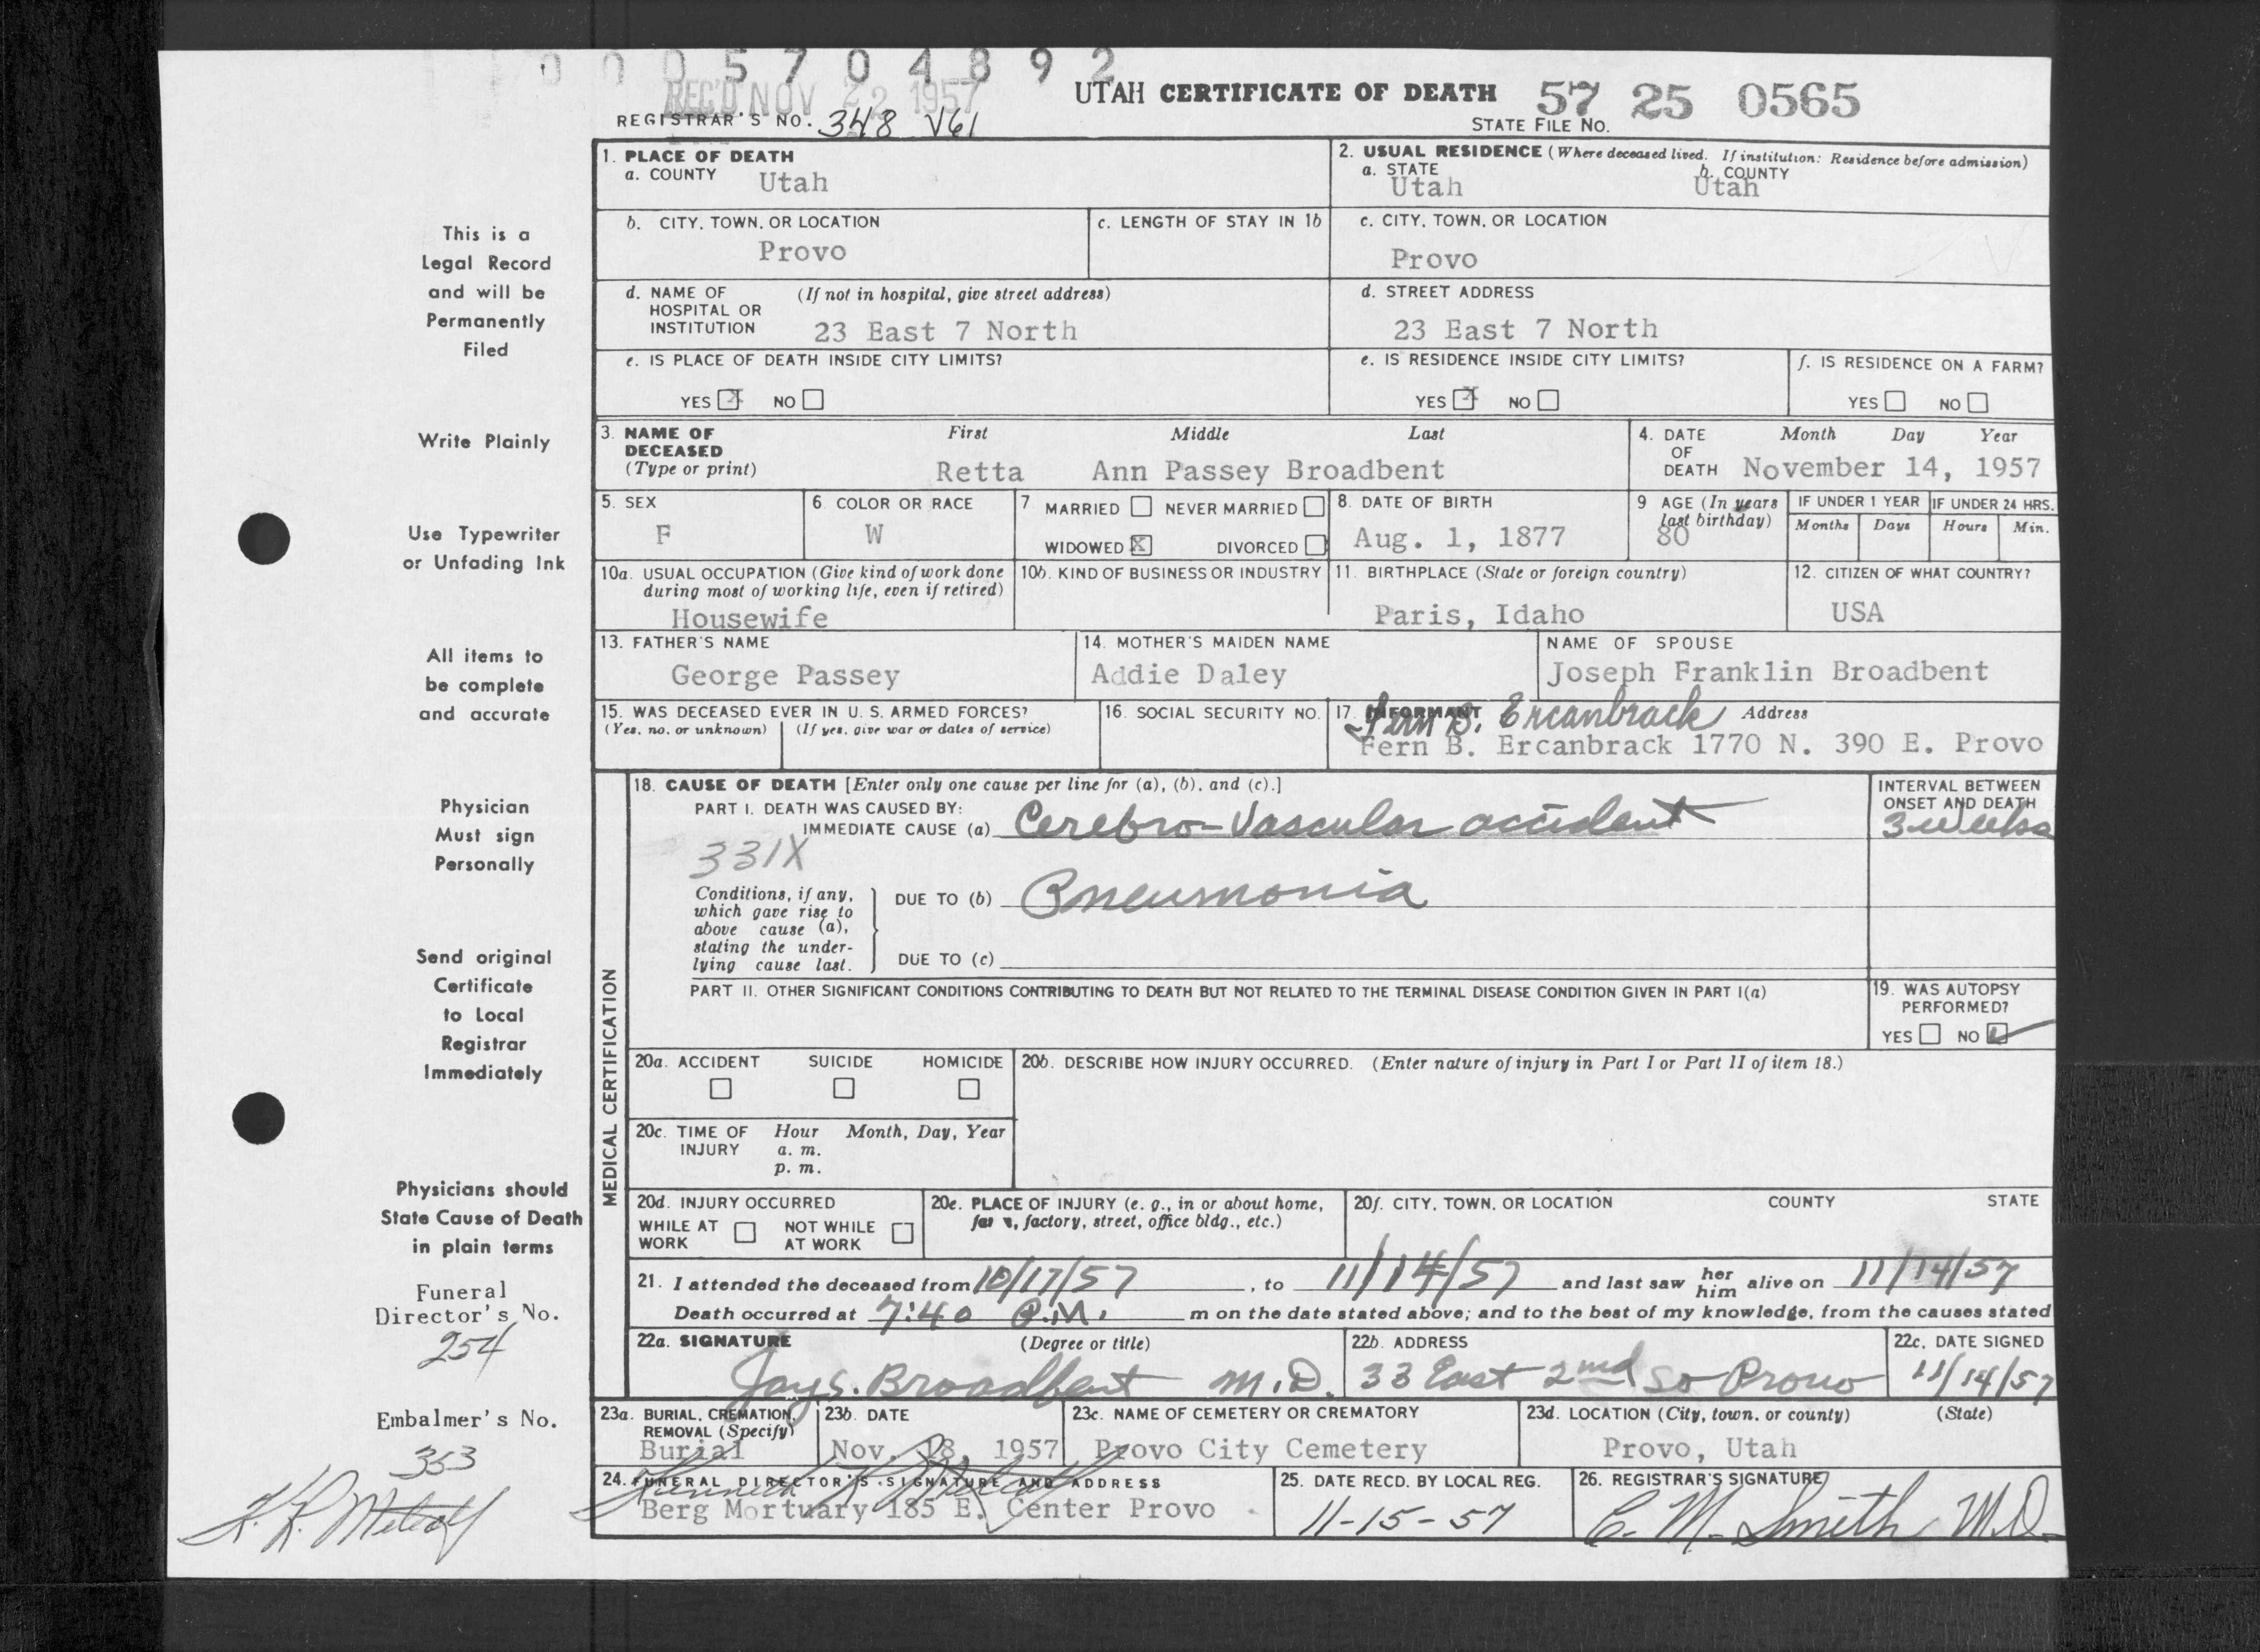 0 0 0 5 7 0 4 8 9 2
REC'D NOV 22 1957
UTAH CERTIFICATE OF DEATH 57 25 0565
REGISTRAR'S NO. 348 V61
STATE FILE NO.
1. PLACE OF DEATH
a. COUNTY Utah
2. USUAL RESIDENCE (Where deceased lived. If institution: Residence before admission)
a. STATE Utah b. COUNTY Utah
b. CITY, TOWN, OR LOCATION Provo
c. LENGTH OF STAY IN 1b
c. CITY, TOWN, OR LOCATION Provo
d. NAME OF HOSPITAL OR INSTITUTION (If not in hospital, give street address) 23 East 7 North
d. STREET ADDRESS 23 East 7 North
e. IS PLACE OF DEATH INSIDE CITY LIMITS?
YES X NO
e. IS RESIDENCE INSIDE CITY LIMITS?
YES X NO
f. IS RESIDENCE ON A FARM?
YES NO
3. NAME OF DECEASED (Type or print)
First Middle Last
Retta Ann Passey Broadbent
4. DATE OF DEATH Month Day Year
November 14, 1957
5. SEX F
6. COLOR OR RACE W
7 MARRIED NEVER MARRIED
WIDOWED X DIVORCED
8. DATE OF BIRTH Aug. 1, 1877
9 AGE (In years last birthday) 80
IF UNDER 1 YEAR Months Days
IF UNDER 24 HRS. Hours Min.
10a. USUAL OCCUPATION (Give kind of work done during most of working life, even if retired)
Housewife
10b. KIND OF BUSINESS OR INDUSTRY
11. BIRTHPLACE (State or foreign country)
Paris, Idaho
12. CITIZEN OF WHAT COUNTRY?
USA
13. FATHER'S NAME George Passey
14. MOTHER'S MAIDEN NAME Addie Daley
NAME OF SPOUSE Joseph Franklin Broadbent
15. WAS DECEASED EVER IN U. S. ARMED FORCES?
(Yes, no, or unknown) (If yes, give war or dates of service)
16. SOCIAL SECURITY NO.
17. INFORMANT Fern B. Ercanbrack Address
Fern B. Ercanbrack 1770 N. 390 E. Provo
MEDICAL CERTIFICATION
18. CAUSE OF DEATH [Enter only one cause per line for (a), (b), and (c).]
PART I. DEATH WAS CAUSED BY:
IMMEDIATE CAUSE (a) Cerebro-Vascular accident
INTERVAL BETWEEN ONSET AND DEATH
3 weeks
331X
Conditions, if any, which gave rise to above cause (a), stating the underlying cause last.
DUE TO (b) Pneumonia
DUE TO (c)
PART II. OTHER SIGNIFICANT CONDITIONS CONTRIBUTING TO DEATH BUT NOT RELATED TO THE TERMINAL DISEASE CONDITION GIVEN IN PART I(a)
19. WAS AUTOPSY PERFORMED?
YES NO ✓
20a. ACCIDENT SUICIDE HOMICIDE
20b. DESCRIBE HOW INJURY OCCURRED. (Enter nature of injury in Part I or Part II of item 18.)
20c. TIME OF INJURY Hour Month, Day, Year
a. m.
p. m.
20d. INJURY OCCURRED
WHILE AT WORK NOT WHILE AT WORK
20e. PLACE OF INJURY (e. g., in or about home, factory, street, office bldg., etc.)
20f. CITY, TOWN, OR LOCATION COUNTY STATE
21. I attended the deceased from 10/17/57, to 11/14/57 and last saw her him alive on 11/14/57
Death occurred at 7:40 P.M. m on the date stated above; and to the best of my knowledge, from the causes stated
22a. SIGNATURE (Degree or title)
Jay S. Broadbent M.D.
22b. ADDRESS
33 East 2nd So Provo
22c. DATE SIGNED
11/14/57
23a. BURIAL, CREMATION, REMOVAL (Specify)
Burial
23b. DATE
Nov. 18, 1957
23c. NAME OF CEMETERY OR CREMATORY
Provo City Cemetery
23d. LOCATION (City, town, or county) (State)
Provo, Utah
24. FUNERAL DIRECTOR'S SIGNATURE AND ADDRESS
Berg Mortuary 185 E. Center Provo
25. DATE RECD. BY LOCAL REG.
11-15-57
26. REGISTRAR'S SIGNATURE
C. M. Smith M.D.
This is a
Legal Record
and will be
Permanently
Filed
Write Plainly
Use Typewriter
or Unfading Ink
All items to
be complete
and accurate
Physician
Must sign
Personally
Send original
Certificate
to Local
Registrar
Immediately
Physicians should
State Cause of Death
in plain terms
Funeral
Director's No.
254
Embalmer's No.
353
K. K. Metcalf